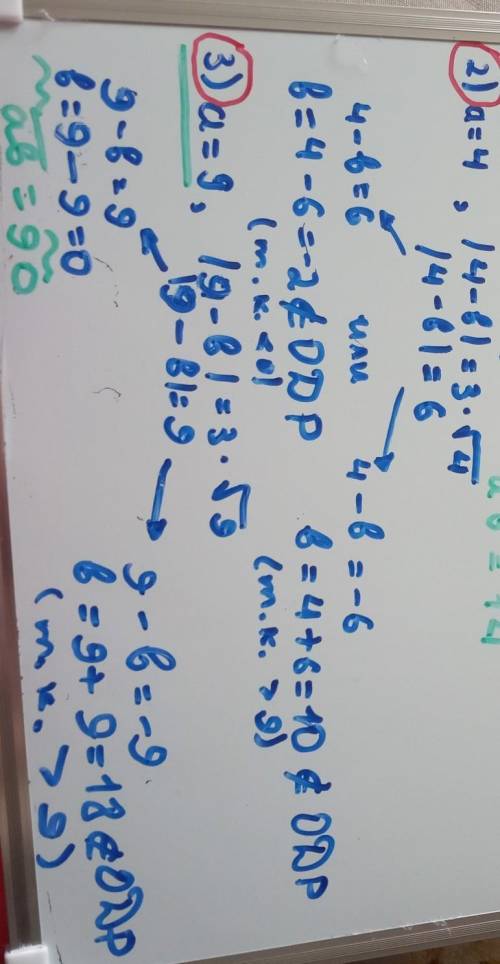 ав = 14
2) а=4, |4-в|=3·√4
|4-в|=6
4-в=6 или 4-в=-6
в=4-6=-2∉ОДР в=4+6=10∉ОДР
(т.к. <0) (т.к. >9)
3) а=9, |9-в|=3·√9
|9-в|=9
9-в=9 9-в=-9
в=9-9=0 в=9+9=18∉ОДР
ав=90 (т.к. >9)